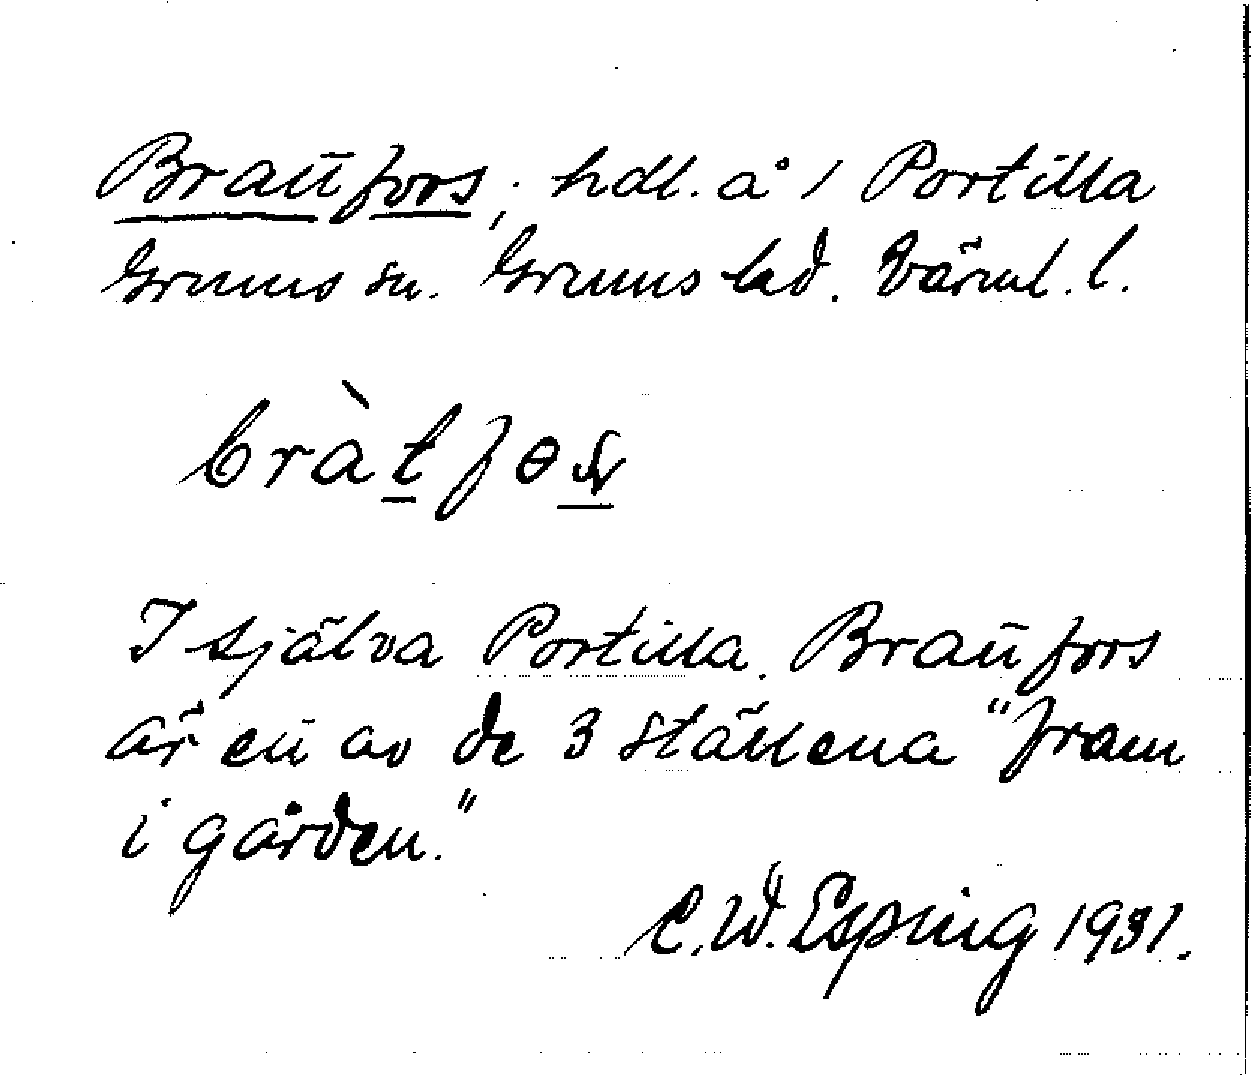 Brattfors; hdl. å 1 Portilla
Grums sn. Grums hd. Värml. l.
I själva Portilla. Brattfors
är ett av de 3 ställena "fram
i gården."
C. W. Esping 1931.